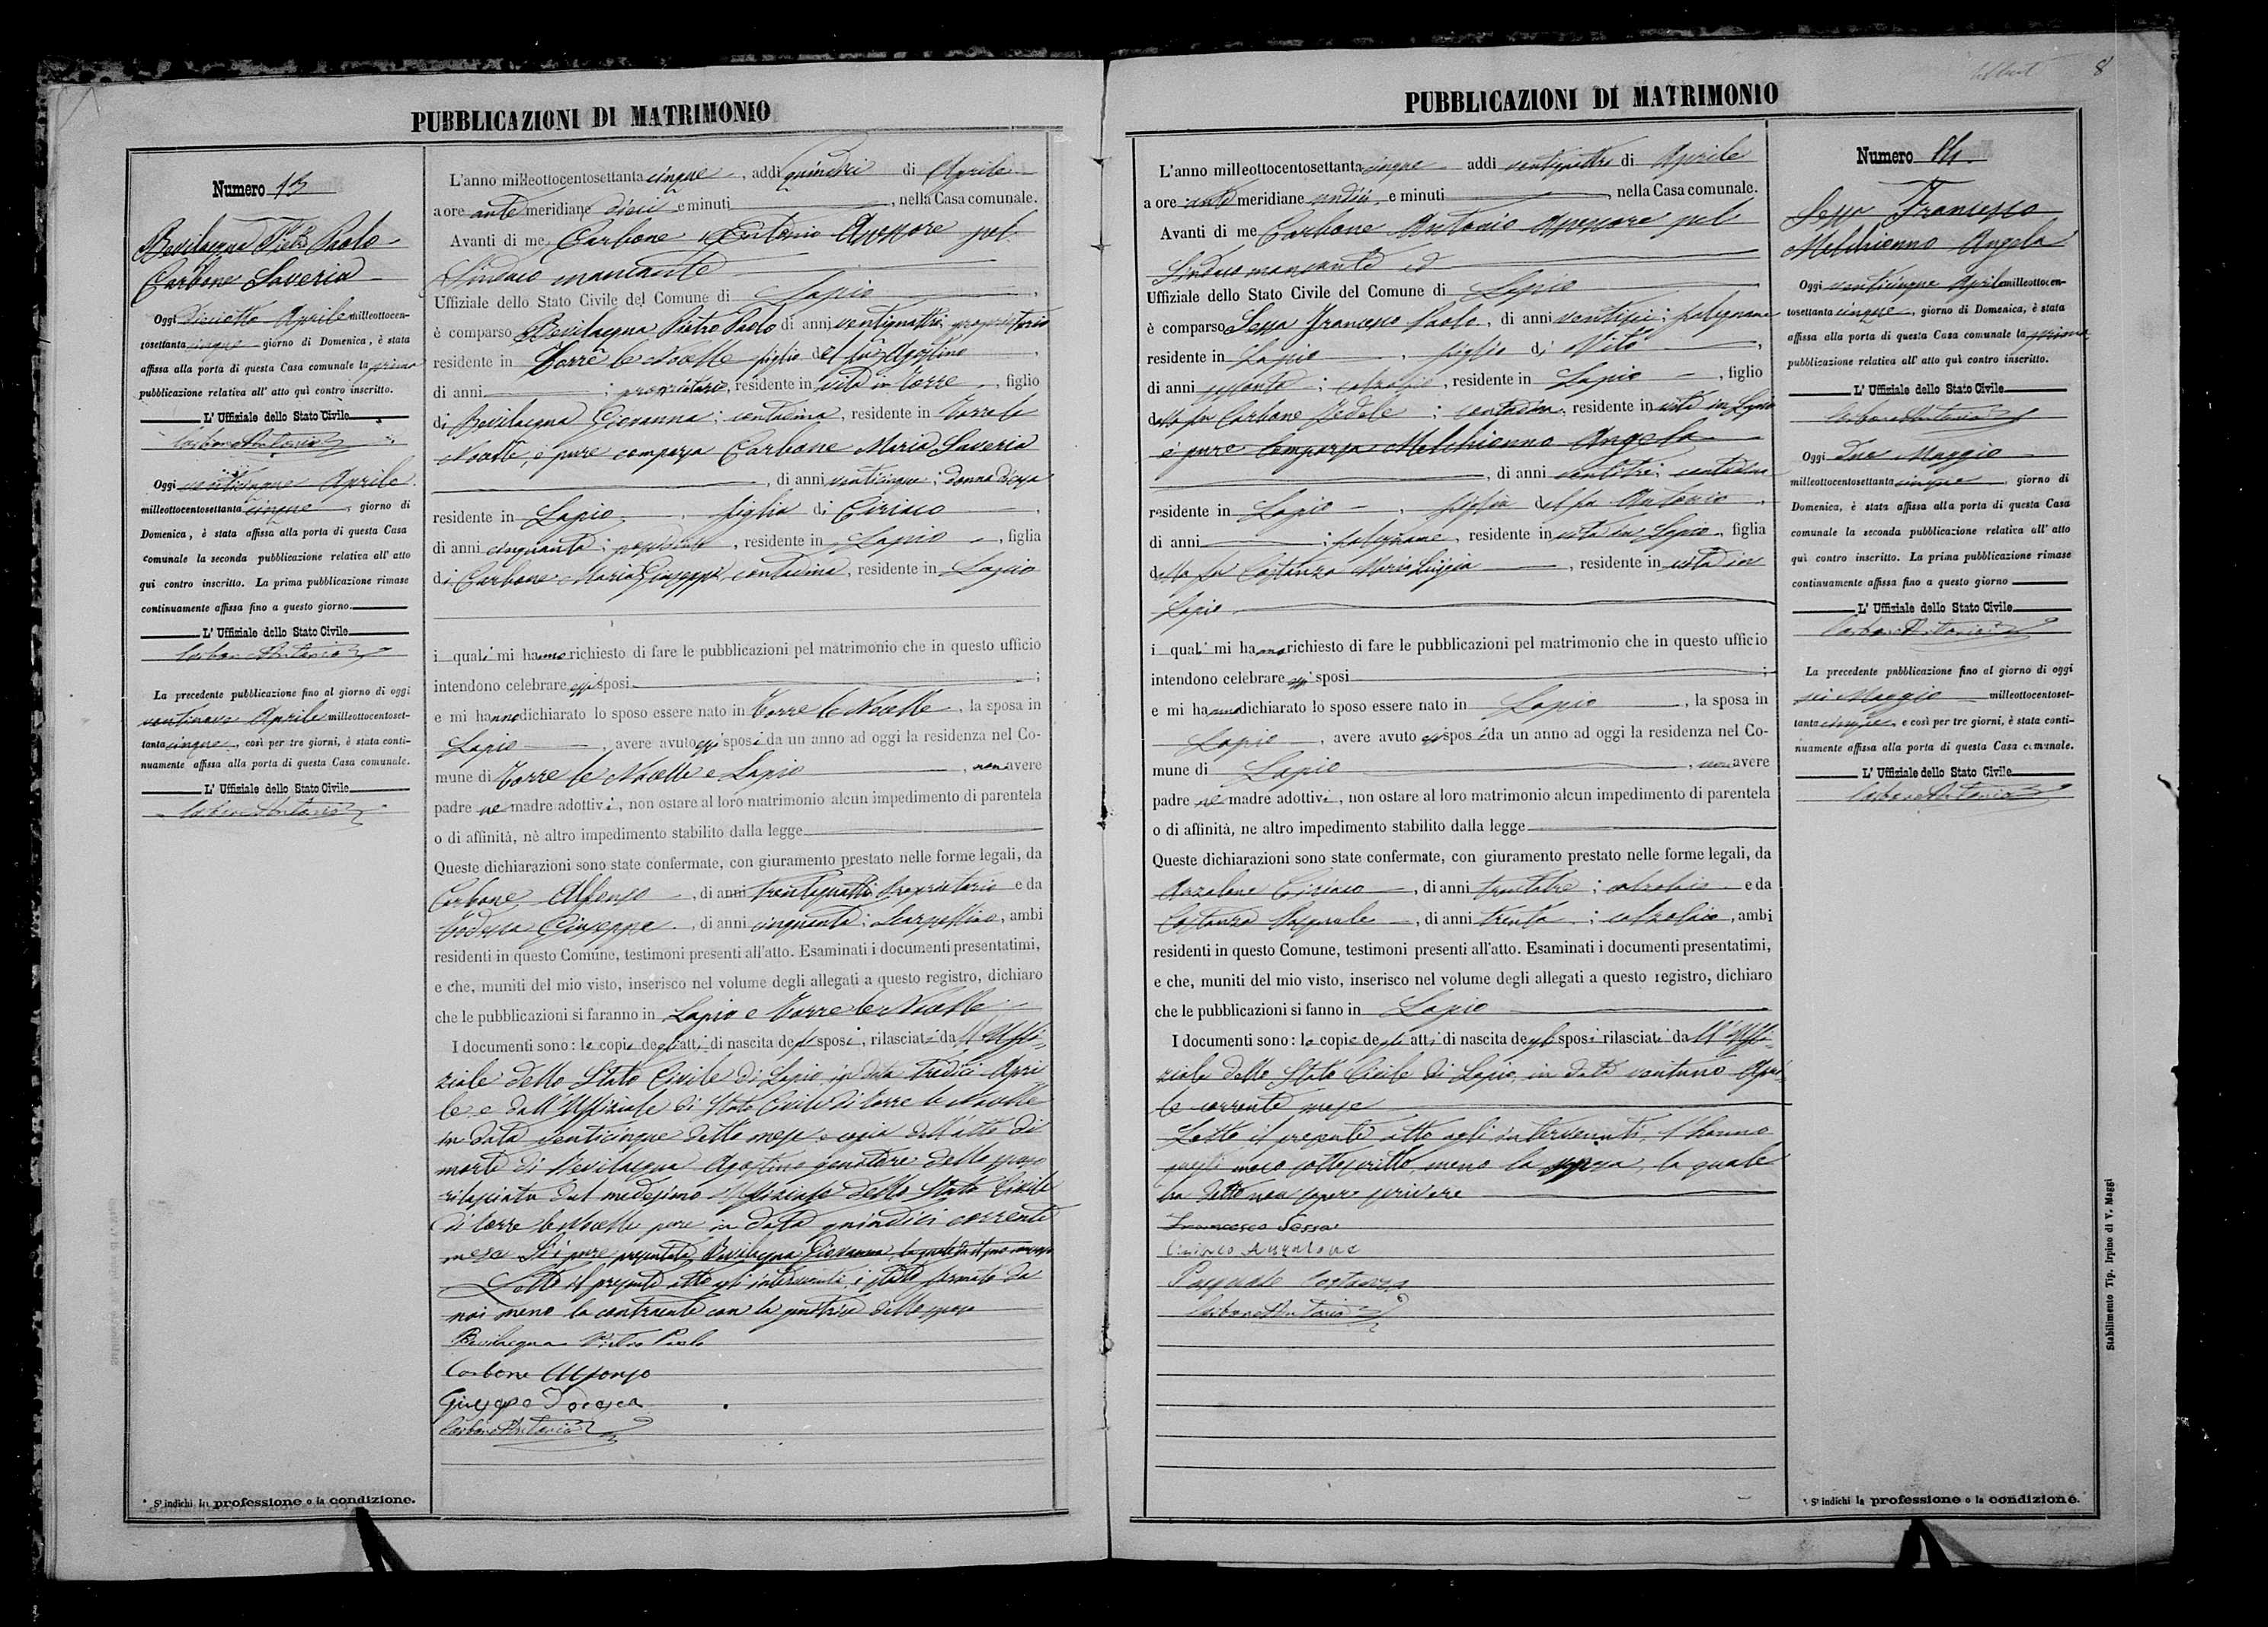 PUBBLICAZIONI DI MATRIMONIO
Numero 13
Bevilacqua Pietro Paolo
Carbone Saveria
Oggi diciotto Aprile milleottocen-
tosettanta cinque giorno di Domenica, è stata
affissa alla porta di questa Casa comunale la prima
pubblicazione relativa all' atto quì contro inscritto.
L' Uffiziale dello Stato Civile
Carbone Antonio
Oggi venticinque Aprile
milleottocentosettanta cinque, giorno di
Domenica, è stata affissa alla porta di questa Casa
comunale la seconda pubblicazione relativa all' atto
qui contro inscritto. La prima pubblicazione rimase
continuamente affissa fino a questo giorno.
L' Uffiziale dello Stato Civile
Carbone Antonio
La precedente pubblicazione fino al giorno di oggi
ventinove Aprile milleottocentoset-
tanta cinque, così per tre giorni, è stata conti-
nuamente affissa alla porta di questa Casa comunale.
L' Uffiziale dello Stato Civile
Carbone Antonio
* Si indichi la professione o la condizione.
L'anno milleottocentosettanta cinque, addì quindici di Aprile
a ore ante meridiane dieci e minuti, nella Casa comunale.
Avanti di me Carbone Antonio Assessore pel
Sindaco mancante
Uffiziale dello Stato Civile del Comune di Lapio,
è comparso Bevilacqua Pietro Paolo di anni ventiquattro; proprietario
residente in Torre le Nocelle figlio del fu Agostino,
di anni ; proprietario, residente in vita in Torre, figlio
di Bevilacqua Giovanna; contadina, residente in Torre le
Nocelle, è pure comparsa Carbone Maria Saveria
, di anni venticinque; donna di casa
residente in Lapio, figlia di Ciriaco,
di anni cinquanta; , residente in Lapio, figlia
di Carbone Maria Giuseppa, contadina, residente in Lapio
i quali mi hanno richiesto di fare le pubblicazioni pel matrimonio che in questo ufficio
intendono celebrare essi sposi ;
e mi hanno dichiarato lo sposo essere nato in Torre le Nocelle, la sposa in
Lapio, avere avuto essi sposi da un anno ad oggi la residenza nel Co-
mune di Torre le Nocelle e Lapio, non avere
padre nè madre adottivi, non ostare al loro matrimonio alcun impedimento di parentela
o di affinità, nè altro impedimento stabilito dalla legge
Queste dichiarazioni sono state confermate, con giuramento prestato nelle forme legali, da
Carbone Alfonso, di anni trentaquattro proprietario e da
Giuseppe, di anni cinquanta; , ambi
residenti in questo Comune, testimoni presenti all'atto. Esaminati i documenti presentatimi,
e che, muniti del mio visto, inserisco nel volume degli allegati a questo registro, dichiaro
che le pubblicazioni si faranno in Lapio e Torre le Nocelle
I documenti sono: le copie degli atti di nascita degli sposi, rilasciati da ll'Uffi-
ziale dello Stato Civile di Lapio in data tredici Apri
le e dall'Uffiziale di Stato Civile di Torre le Nocelle
in data venticinque detto mese e copia dell'atto di
morte di Bevilacqua Agostino genitore dello sposo
rilasciata dal medesimo Uffiziale dello Stato Civile
di Torre le Nocelle pure in data quindici corrente
mese. Si è pure presentata Bevilacqua Giovanna, la quale
Letto il presente atto agli intervenuti, è stato firmato da
noi meno la contraente con la genitrice dello sposo
Bevilacqua Pietro Paolo
Carbone Alfonso
Giuseppe
Carbone Antonio
PUBBLICAZIONI DI MATRIMONIO
8
L'anno milleottocentosettanta cinque addì ventiquattro di Aprile
a ore ante meridiane undici, e minuti, nella Casa comunale.
Avanti di me Carbone Antonio Assessore pel
Sindaco mancante ed
Uffiziale dello Stato Civile del Comune di Lapio
è comparso Sessa Francesco Paolo, di anni ventisei; falegname
residente in Lapio, figlio di Vito,
di anni sessanta; calzolaio, residente in Lapio, figlio
della fu Carbone Fedele; contadina, residente in vita in Lapio
è pure comparsa Melchionno Angela
, di anni ventitre; contadina
residente in Lapio, figlia del fu Antonio,
di anni ; falegname, residente in vita in Lapio, figlia
della fu Costanza Maria Luigia, residente in vita in
Lapio
i quali mi hanno richiesto di fare le pubblicazioni pel matrimonio che in questo ufficio
intendono celebrare essi sposi ;
e mi hanno dichiarato lo sposo essere nato in Lapio, la sposa in
Lapio, avere avuto essi sposi da un anno ad oggi la residenza nel Co-
mune di Lapio, non avere
padre nè madre adottivi, non ostare al loro matrimonio alcun impedimento di parentela
o di affinità, ne altro impedimento stabilito dalla legge
Queste dichiarazioni sono state confermate, con giuramento prestato nelle forme legali, da
Anzalone Ciriaco, di anni trentatre; calzolaio e da
Costanza Pasquale, di anni trenta; calzolaio, ambi
residenti in questo Comune, testimoni presenti all'atto. Esaminati i documenti presentatimi,
e che, muniti del mio visto, inserisco nel volume degli allegati a questo registro, dichiaro
che le pubblicazioni si fanno in Lapio
I documenti sono: le copie degli atti di nascita degli sposi rilasciati da ll'Uffi-
ziale dello Stato Civile di Lapio in data ventuno Apri-
le corrente mese
Letto il presente atto agli intervenuti, l'hanno
meco sottoscritto, meno la sposa, la quale
ha detto non sapere scrivere
Francesco Sessa
Ciriaco Anzalone
Pasquale Costanza
Carbone Antonio
Numero 14.
Sessa Francesco
Melchionno Angela
Oggi venticinque Aprile milleottocen-
tosettanta cinque, giorno di Domenica, è stata
affissa alla porta di questa Casa comunale la prima
pubblicazione relativa all' atto quì contro inscritto.
L' Uffiziale dello Stato Civile
Carbone Antonio
Oggi due Maggio
milleottocentosettanta cinque, giorno di
Domenica, è stata affissa alla porta di questa Casa
comunale la seconda pubblicazione relativa all' atto
quì contro inscritto. La prima pubblicazione rimase
continuamente affissa fino a questo giorno
L' Uffiziale dello Stato Civile
Carbone Antonio
La precedente pubblicazione fino al giorno di oggi
sei Maggio milleottocentoset-
tanta cinque, e così per tre giorni, è stata conti-
nuamente affissa alla porta di questa Casa comunale.
L' Uffiziale dello Stato Civile
Carbone Antonio
* Si indichi la professione o la condizione.
Stabilimento Tip. Irpino di V. Maggi